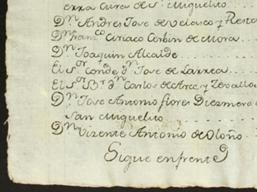 erra Cura de Sn. Miguelito
Dn. Andres Jose de Velasco y Resta
Dn. Franco. Ciriaco Corbin de Mora
Dn. Joaquin Alcalde
El Sor. Conde Dn. Jose de Larrea
El Sor. Br. Dn. Carlos de Arce, y Zevallos
Dn. Jose Antonio flores Diezmero d
San Miguelito
Dn. Vizente Antonio de Oloño
Sigue enfrente